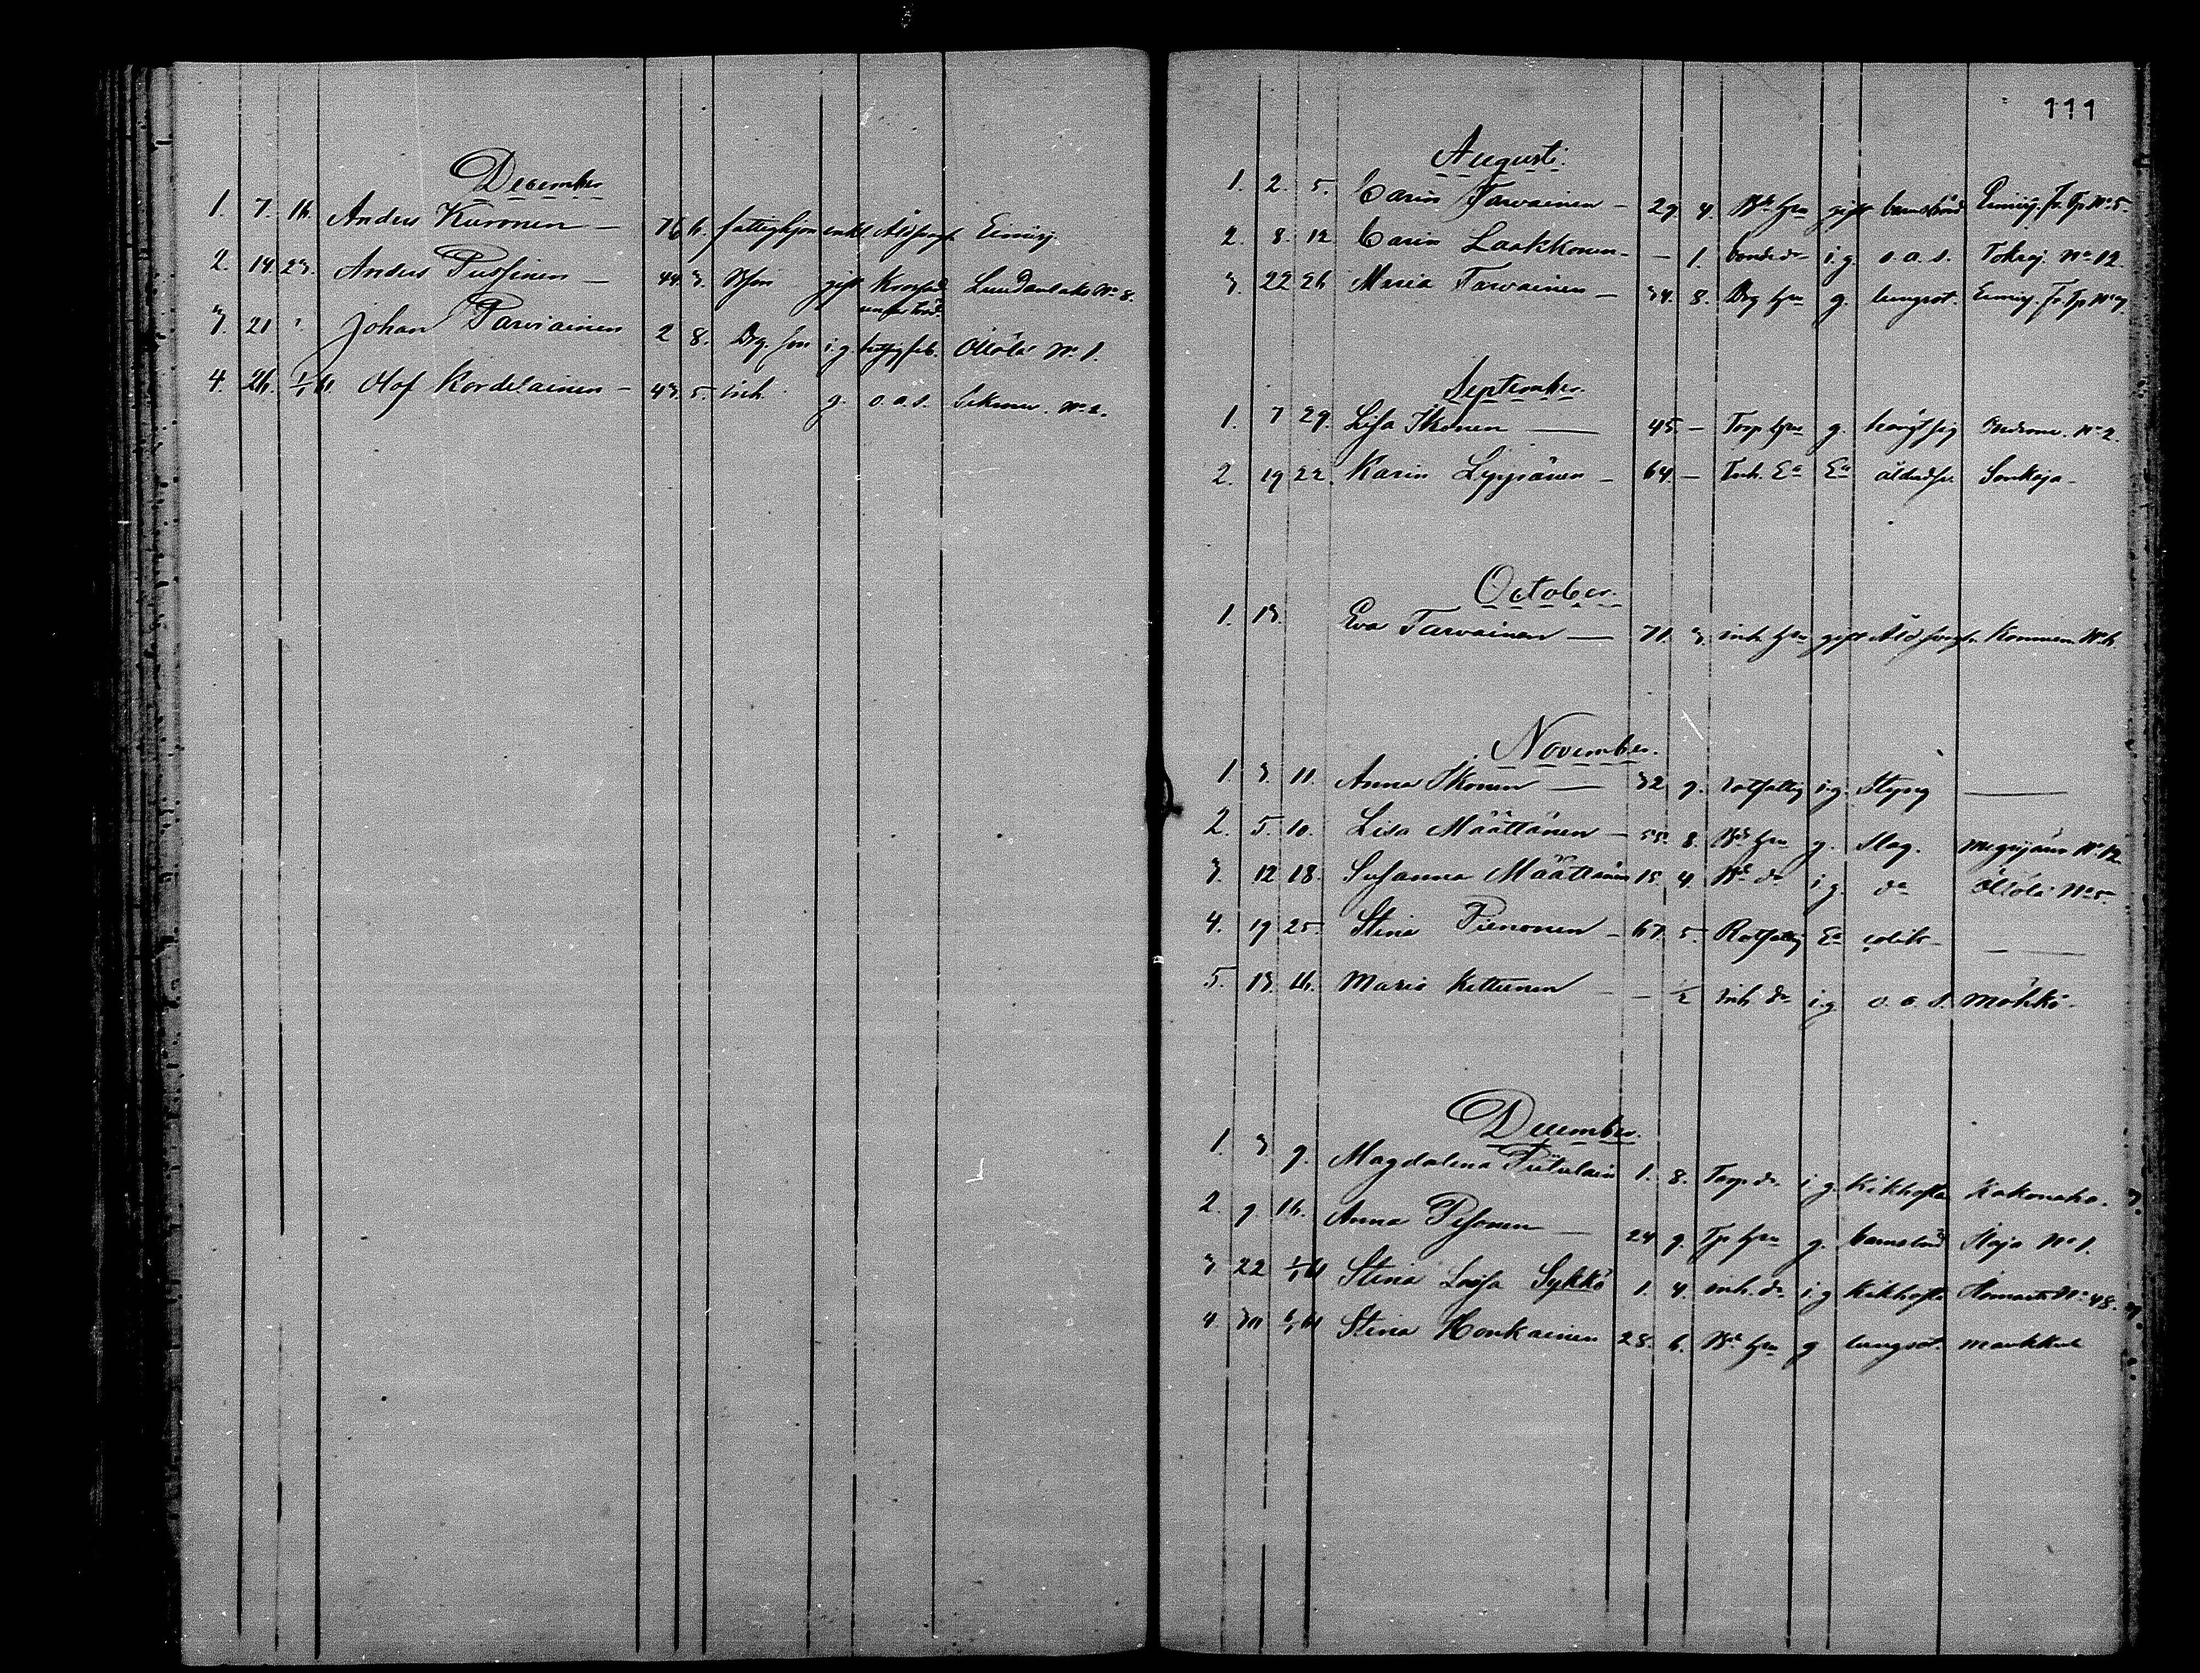 December
1. 7. 16. Anders Kuronen — 76 6. fattighjon enkl. Ålderdh. Eimisj.
2. 14. 23. Anders Pussinen — 44. 3. gift Luudanlaks No 8.
3. 21 Johan Parviainen 2 8. Drg. son i.g. Öllölä No 1.
4. 26. 1/1 61. Olof Kordelainen — 43. 5. inh. g. o.a.s. Sikren. No 2.
111
Augusti.
1. 2. 5. Carin Tarvainen — 29 4. Bd. hru gift barnsbörd Eimisj. Fr Tp No 5.
2. 8. 12. Carin Laakkonen — — 1. bonde dr i.g. o.a.s. Tokraj. No 12.
3. 22 26 Maria Tarvainen — 34. 8. Drg hru g. lungsot. Eimisj. Fr Tp No 7.
September.
1. 7 29. Lisa Ikonen — 45. — Torp hru g. No 2.
2. 19 22. Karin Lyyränen — 64. — Inh. Ea Ea ålderdh. Sonkaja.
October.
1. 13. Eva Tarvainen — 71. 3. inh. hru gift Kommen No 6.
November.
1. 3 11. Anna Ikonen — 32 9. rotfattig i.g. Styng —
2. 5. 10. Lisa Määttänen — 55. 8. Bd. hru g. Slag. Megrijärvi No 12
3. 12 18. Susanna Määttänen 15. 4. Bd. dr i.g. do Öllölä No 5.
4. 19 25. Stina Piironen — 67. 5. Rotfattig Ea colik —
5. 13. 16. Maria Kettunen — — 1/2 inh. dr i.g. o.a.s. Möhkö.
December.
1. 3. 9. Magdalena Piitulain 1. 8. Torp. dr i.g. Kikhosta Kakonaho.
2. 9. 16. Anna Pesonen — 24. 9. Tp hru g. barnsbörd No 1.
3 22 1/1 61 Stina Lovisa Sykkö 1. 4. inh. dr i.g. Kikhosta No 48.
4. 30 6/1 61 Stina Honkainen 28. 6. Bd. hru g lungsot.